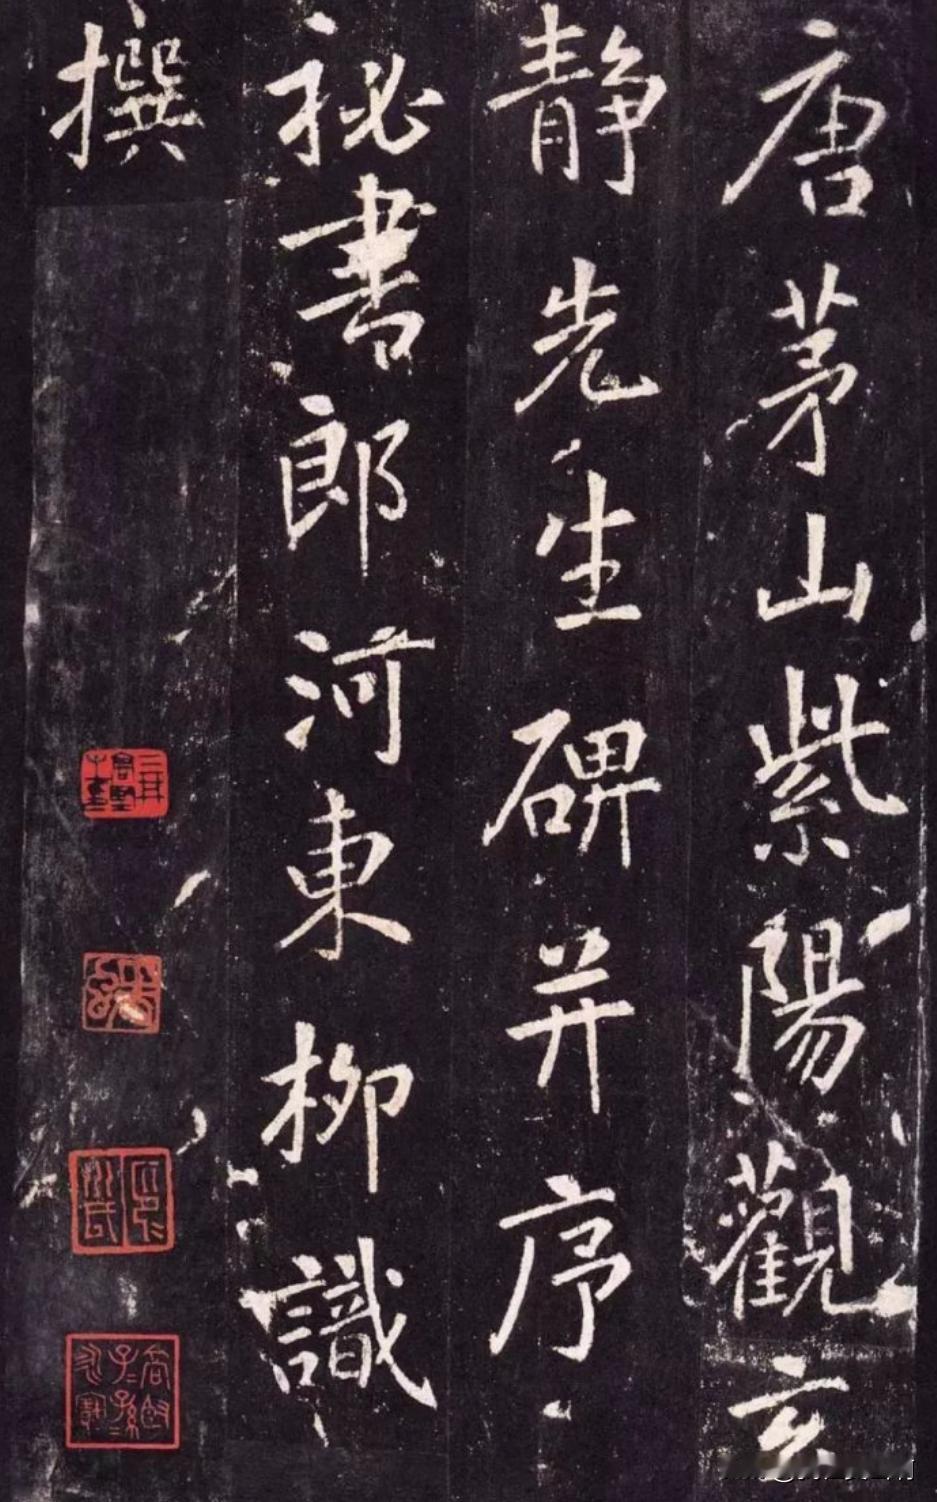 唐茅山紫陽觀玄
靜先生碑并序
祕書郎河東柳識
撰